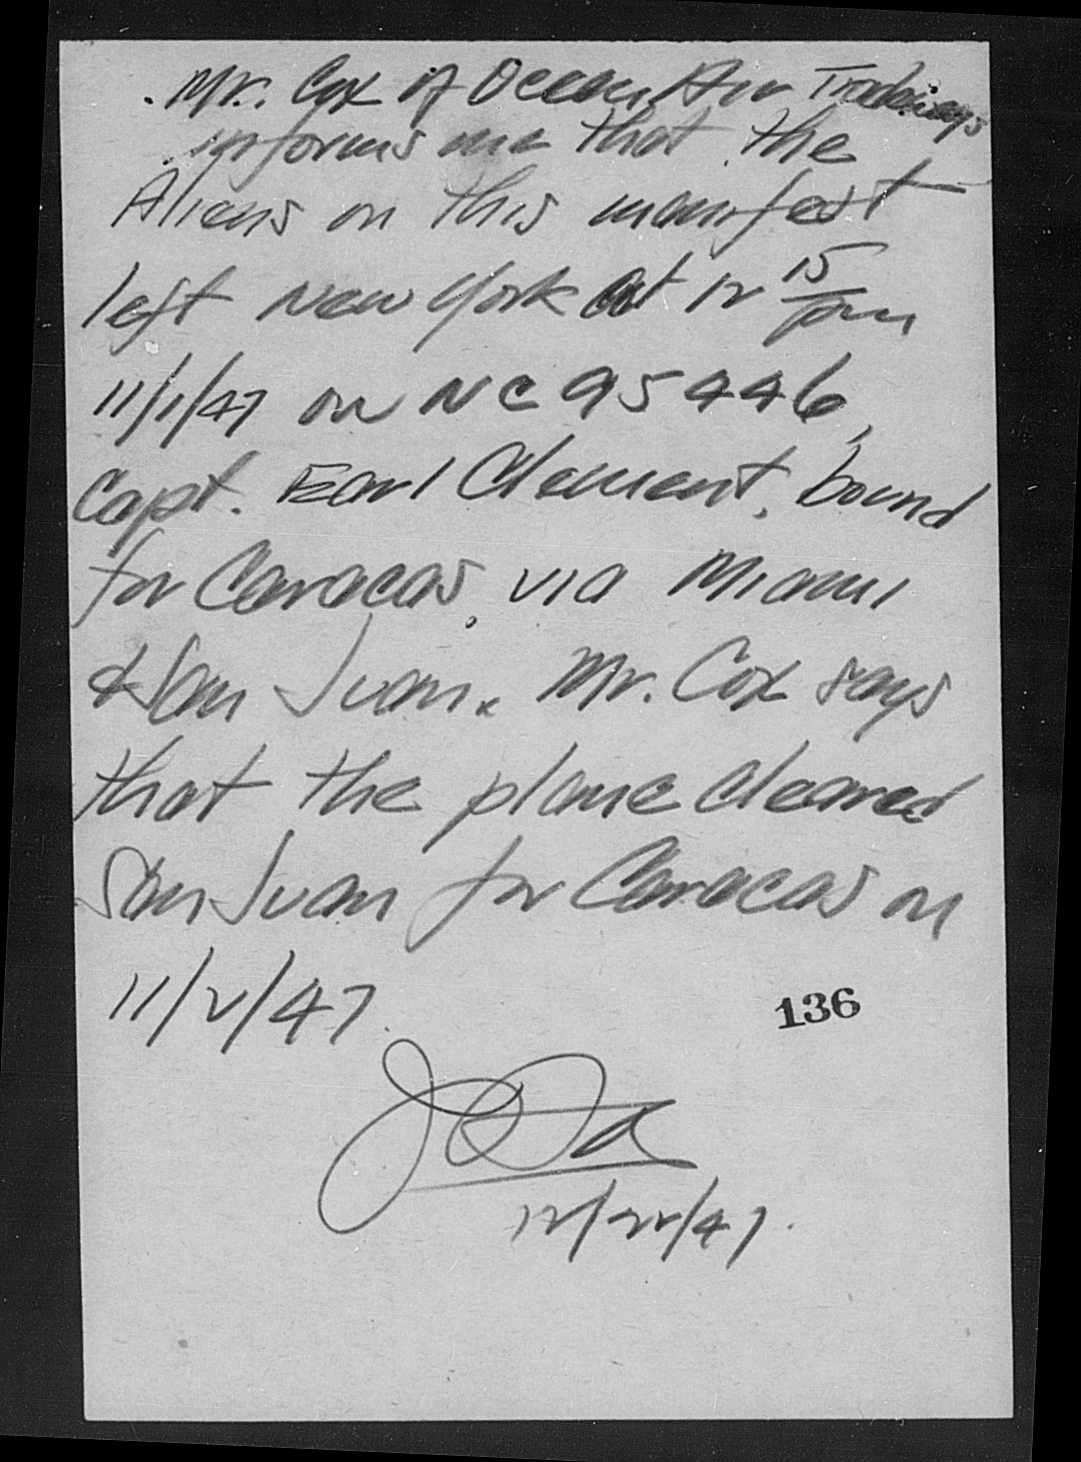 Mr. Cox of Ocean Air Tradeways
informs me that the
Aliens on this manifest
left New York at 12 15/pm
11/1/47 on NC 95446,
Capt. Earl Clement, bound
for Caracas, via Miami
& San Juan. Mr. Cox says
that the plane cleared
San Juan for Caracas on
11/2/47.
136
12/22/47.